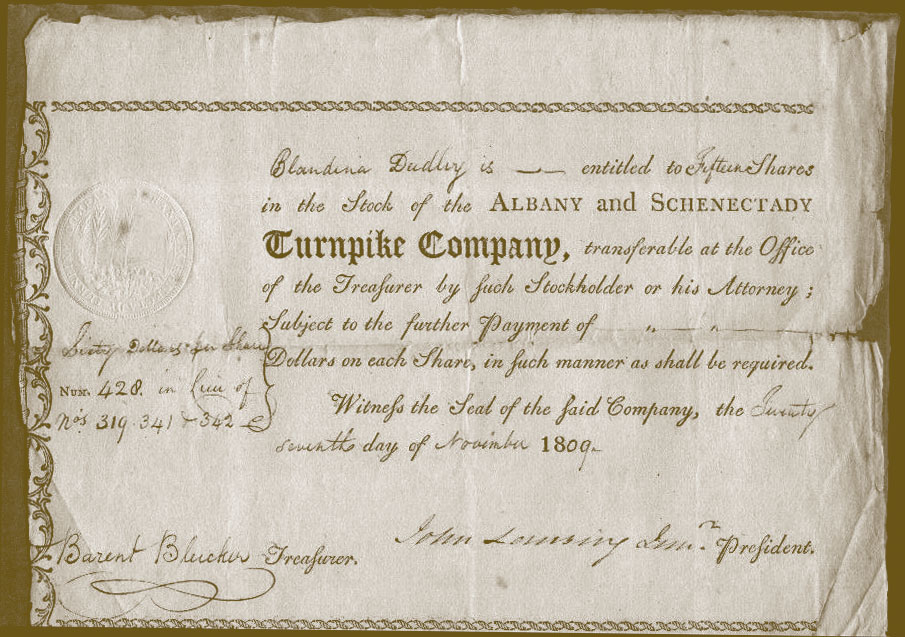 Blandina Dudley is —— entitled to Fifteen Shares
in the Stock of the ALBANY and SCHENECTADY
Turnpike Company, transferable at the Office
of the Treaſurer by ſuch Stockholder or his Attorney;
Subject to the further Payment of " "
Dollars on each Share, in ſuch manner as shall be required.
Witneſs the Seal of the ſaid Company, the Twenty
seventh day of November 1809.
Sixty Dollars per Share
NUM. 428. in Lieu of
Nos. 319. 341 & 342
Barent Bleecker Treaſurer.
John Lansing Junr. Preſident.